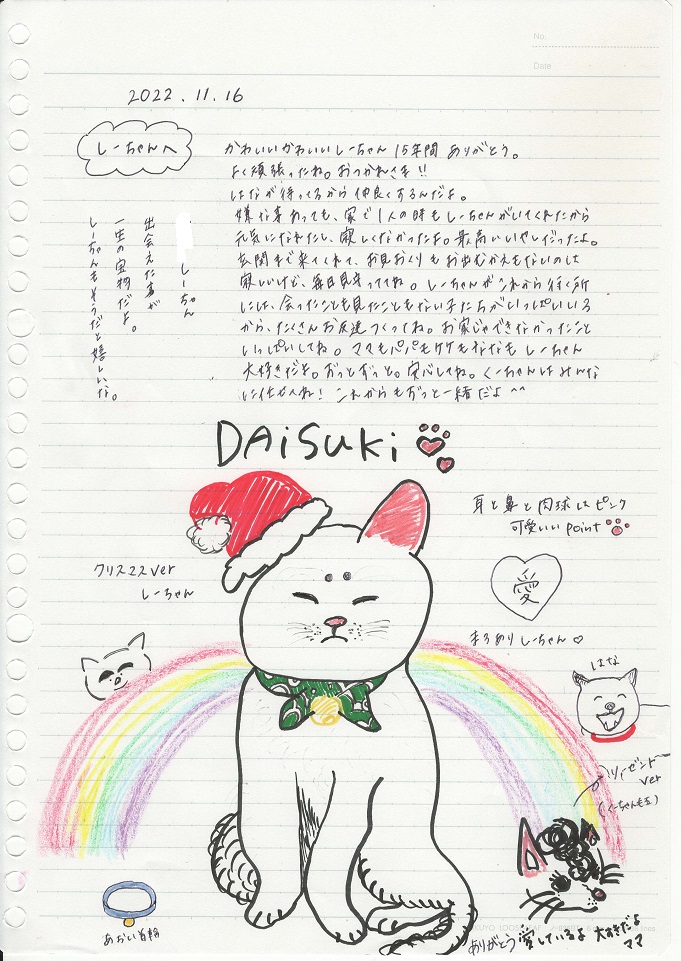 No.
Date
2022.11.16
しーちゃんへ
かわいいかわいいしーちゃん 15年間 ありがとう。
よく頑張ったね。おつかれさま!!
はなが待ってるから仲良くするんだよ。
嫌な事あっても、家で1人の時もしーちゃんがいてくれたから
元気になれたし、寂しくなかったよ。最高のいやしだったよ。
玄関まで来てくれて、お見おくりもおむかえもないのは
寂しいけど、毎日見守っててね。しーちゃんがこれから行く所
には、会ったことも見たこともない子たちがいっぱいいる
から、たくさんお友達つくってね。お家じゃできなかったこと
いっぱいしてね。ママもパパもケケもななもしーちゃん
大好きだよ。ずっとずっと。安心してね。くーちゃんはみんな
に任かせてね! これからもずっと一緒だよ^^
しーちゃん
出会えた事が
一生の宝物だよ。
しーちゃんもそうだと嬉しいな。
DAiSUKi
耳と鼻と肉球はピンク
可愛いい point
クリスマスver
しーちゃん
愛
まろありしーちゃん♡
はな
リーゼントver
(くーちゃん)
あおい首輪
ありがとう 愛しているよ 大好きだよ
ママ